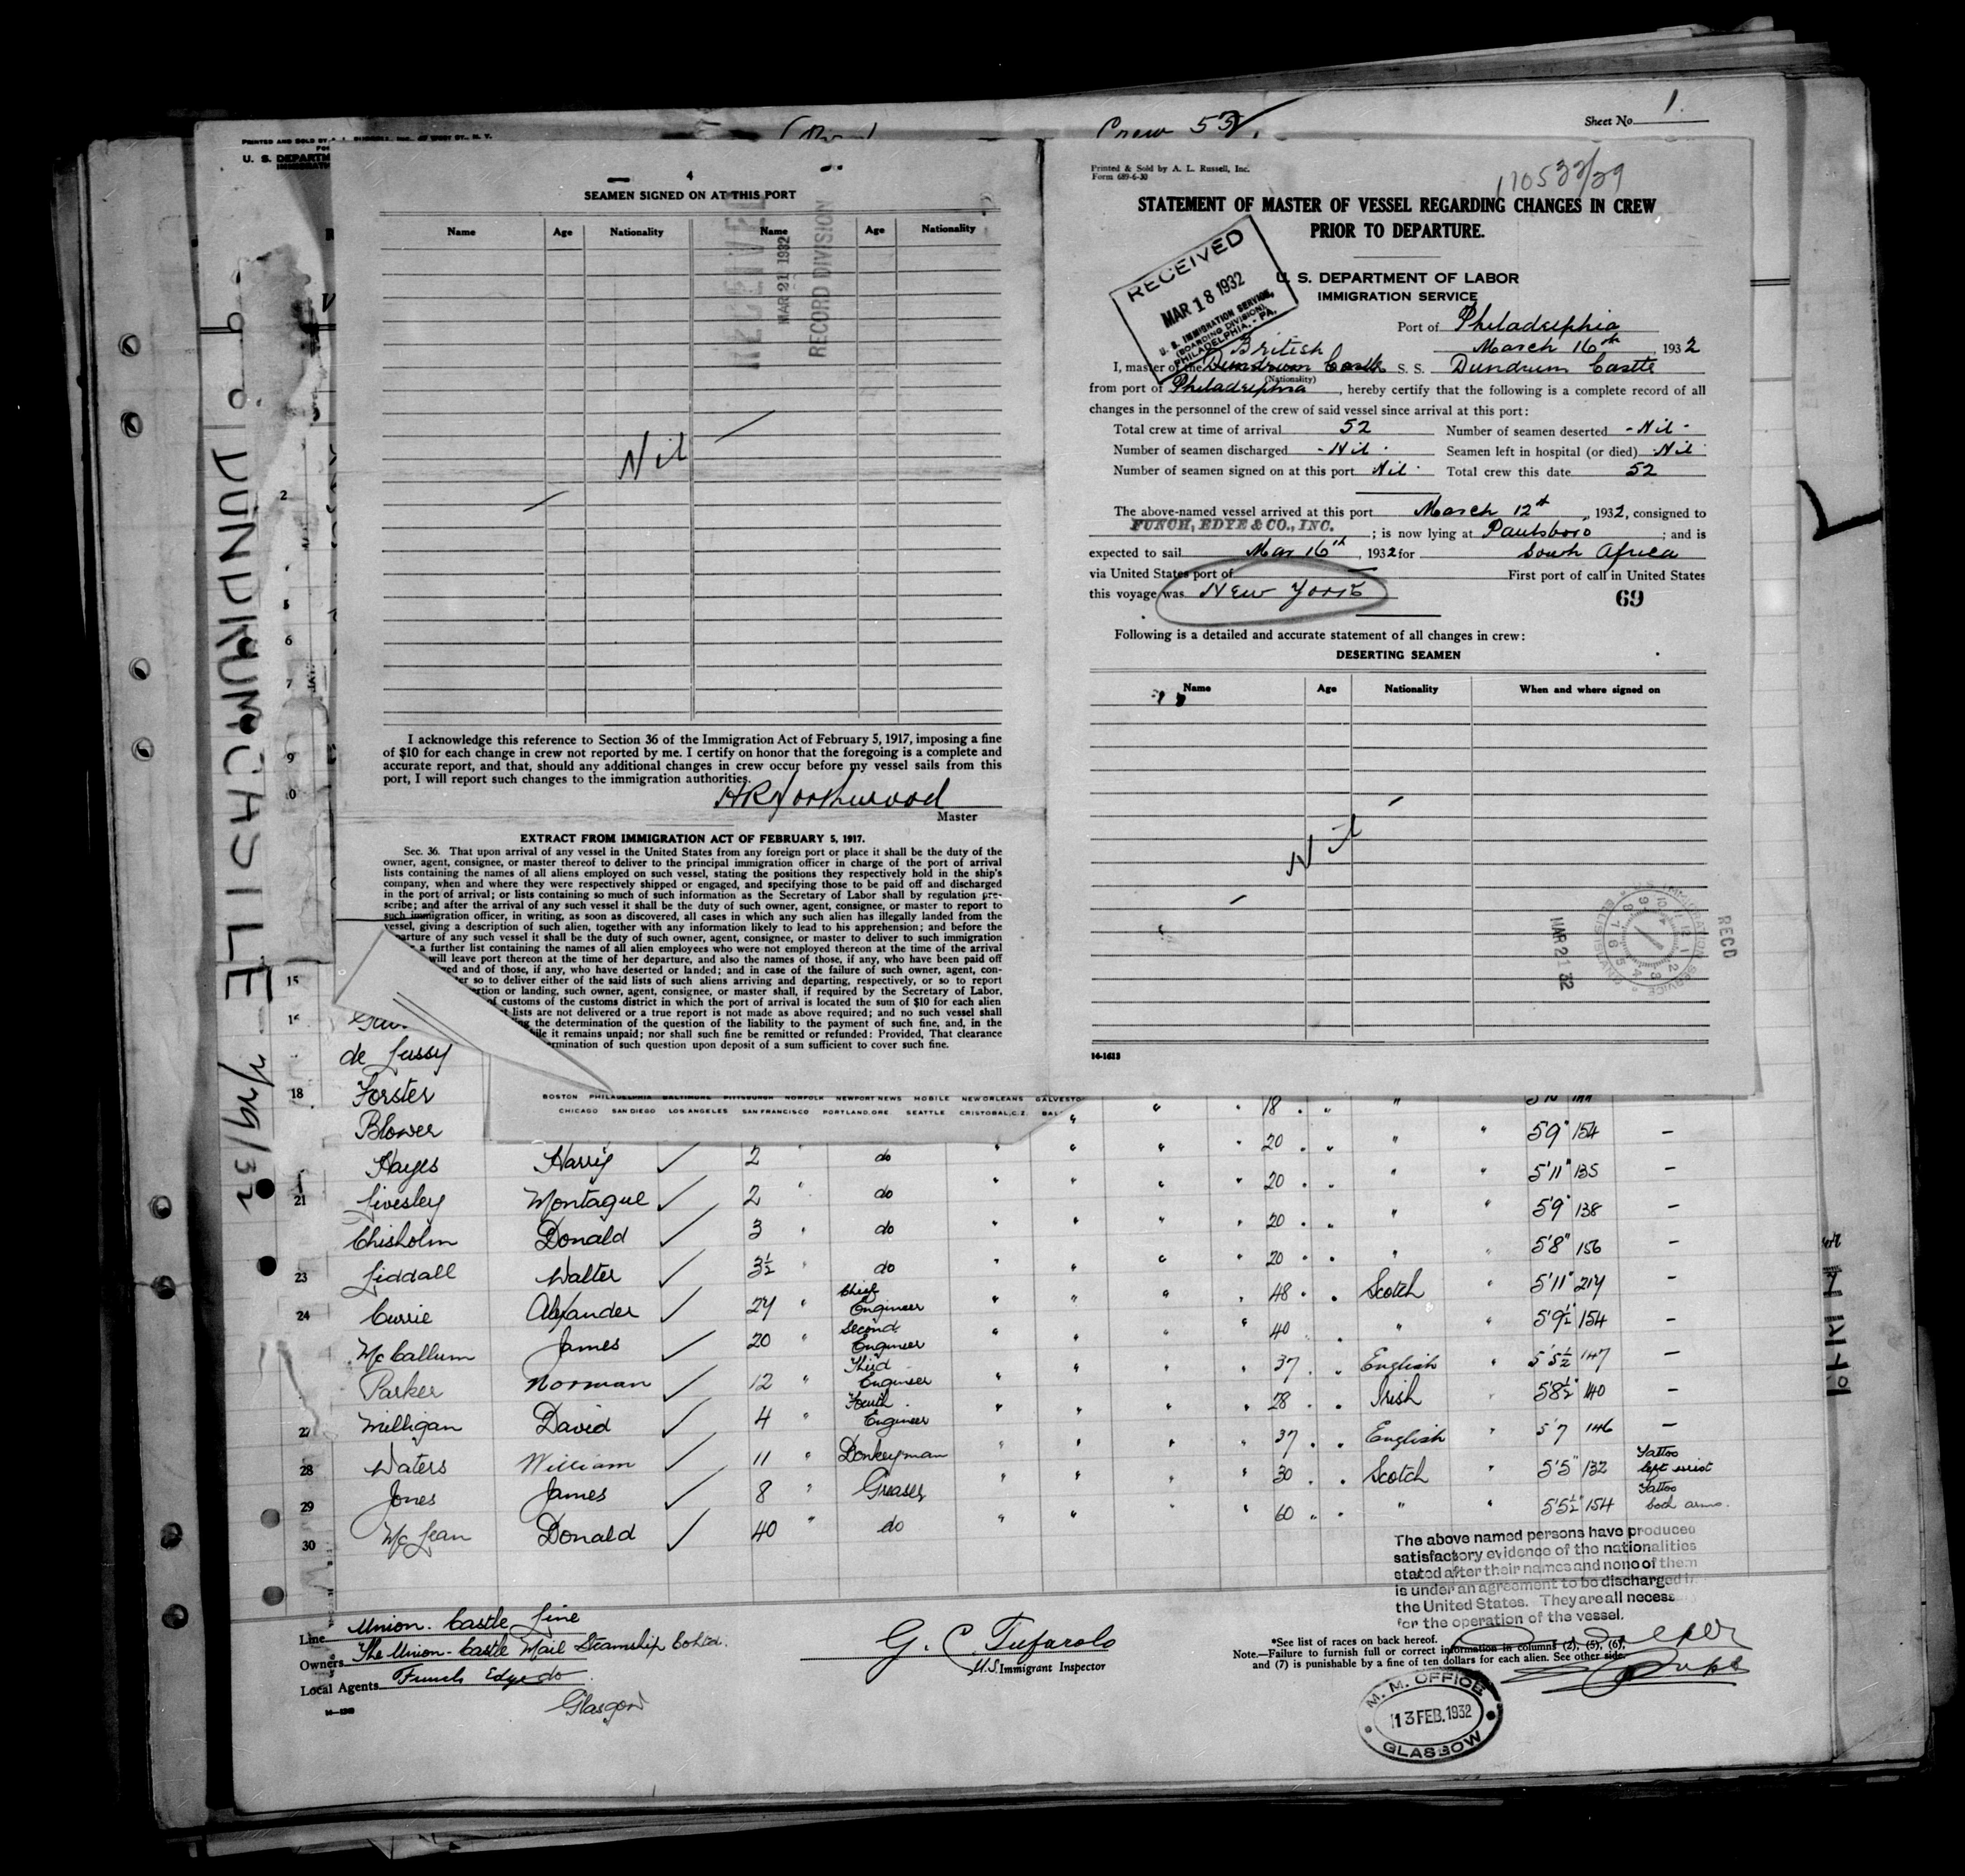 PRINTED AND SOLD BY
U. S. DEPARTM
Crew 53
Sheet No. 1.
DUNDRUM CASTLE - 2/29/32
4
SEAMEN SIGNED ON AT THIS PORT
Name Age Nationality Name Age Nationality
RECEIVED
MAR 21 1932
RECORD DIVISION
Nil
I acknowledge this reference to Section 36 of the Immigration Act of February 5, 1917, imposing a fine
of $10 for each change in crew not reported by me. I certify on honor that the foregoing is a complete and
accurate report, and that, should any additional changes in crew occur before my vessel sails from this
port, I will report such changes to the immigration authorities.
HR Northwood
Master
EXTRACT FROM IMMIGRATION ACT OF FEBRUARY 5, 1917.
Sec. 36. That upon arrival of any vessel in the United States from any foreign port or place it shall be the duty of the
owner, agent, consignee, or master thereof to deliver to the principal immigration officer in charge of the port of arrival
lists containing the names of all aliens employed on such vessel, stating the positions they respectively hold in the ship's
company, when and where they were respectively shipped or engaged, and specifying those to be paid off and discharged
in the port of arrival; or lists containing so much of such information as the Secretary of Labor shall by regulation pre-
scribe; and after the arrival of any such vessel it shall be the duty of such owner, agent, consignee, or master to report to
such immigration officer, in writing, as soon as discovered, all cases in which any such alien has illegally landed from the
vessel, giving a description of such alien, together with any information likely to lead to his apprehension; and before the
parture of any such vessel it shall be the duty of such owner, agent, consignee, or master to deliver to such immigration
a further list containing the names of all alien employees who were not employed thereon at the time of the arrival
will leave port thereon at the time of her departure, and also the names of those, if any, who have been paid off
ged and of those, if any, who have deserted or landed; and in case of the failure of such owner, agent, con-
er so to deliver either of the said lists of such aliens arriving and departing, respectively, or so to report
ertion or landing, such owner, agent, consignee, or master shall, if required by the Secretary of Labor,
of customs of the customs district in which the port of arrival is located the sum of $10 for each alien
t lists are not delivered or a true report is not made as above required; and no such vessel shall
ng the determination of the question of the liability to the payment of such fine, and, in the
ile it remains unpaid; nor shall such fine be remitted or refunded: Provided, That clearance
ermination of such question upon deposit of a sum sufficient to cover such fine.
Printed & Sold by A. L. Russell, Inc.
Form 689-6-30
STATEMENT OF MASTER OF VESSEL REGARDING CHANGES IN CREW
PRIOR TO DEPARTURE.
RECEIVED
MAR 18 1932
U. S. IMMIGRATION SERVICE,
(BOARDING DIVISION)
PHILADELPHIA, - PA.
U. S. DEPARTMENT OF LABOR
IMMIGRATION SERVICE
Port of Philadelphia
British March 16th, 1932
I, master of the Dundrum Castle S. S. Dundrum Castle
(Nationality)
from port of Philadelphia, hereby certify that the following is a complete record of all
changes in the personnel of the crew of said vessel since arrival at this port:
Total crew at time of arrival 52 Number of seamen deserted - Nil -
Number of seamen discharged - Nil - Seamen left in hospital (or died) Nil
Number of seamen signed on at this port Nil Total crew this date 52
The above-named vessel arrived at this port March 12th, 1932, consigned to
FUNCH, EDYE & CO., INC.; is now lying at Paulsboro; and is
expected to sail Mar 16th, 1932 for South Africa
via United States port of First port of call in United States
this voyage was New York
69
Following is a detailed and accurate statement of all changes in crew:
DESERTING SEAMEN
Name Age Nationality When and where signed on
Nil
RECD
MAR 21 32
U. S. IMMIGRATION SERVICE
ELLIS ISLAND
14-1613
BOSTON PHILADELPHIA BALTIMORE PITTSBURGH NORFOLK NEWPORT NEWS MOBILE NEW ORLEANS GALVESTO
CHICAGO SAN DIEGO LOS ANGELES SAN FRANCISCO PORTLAND, ORE. SEATTLE CRISTOBAL, C.Z. BAL
2
5
6
7
9
15
18 Forster
Blower
18
20 " 5'9" 154 -
Hayes Harris 2 " do 20 " 5'11" 135 -
21 Livesley Montague 2 " do 20 " 5'9" 138 -
Chisholm Donald 3 " do 20 " 5'8" 156 -
23 Liddall Walter 3½ " do
24 Currie Alexander 24 " Chief Engineer 48 Scotch " 5'11" 214 -
McCallum James 20 " Second Engineer 40 " 5'9½" 154 -
Parker Norman 12 " Third Engineer 37 English " 5'5½" 147 -
27 Milligan David 4 " Fourth Engineer 28 Irish " 5'8½" 140 -
28 Waters William 11 " Donkeyman 37 English " 5'7 146 -
29 Jones James 8 " Greaser 30 Scotch " 5'5" 132 Tattoo left wrist
30 McLean Donald 40 " do 60 " 5'5½" 154 Tattoo both arms.
The above named persons have produced
satisfactory evidence of the nationalities
stated after their names and none of them
is under an agreement to be discharged in
the United States. They are all necess
for the operation of the vessel.
Line Union-Castle Line
Owners The Union-Castle Mail Steamship Co Ltd.
Local Agents Funch Edye do
Glasgow
G. C. Tufarolo
U.S. Immigrant Inspector
*See list of races on back hereof.
Note.—Failure to furnish full or correct information in columns (2), (5), (6),
and (7) is punishable by a fine of ten dollars for each alien. See other side.
M. M. OFFICE
13 FEB. 1932
GLASGOW